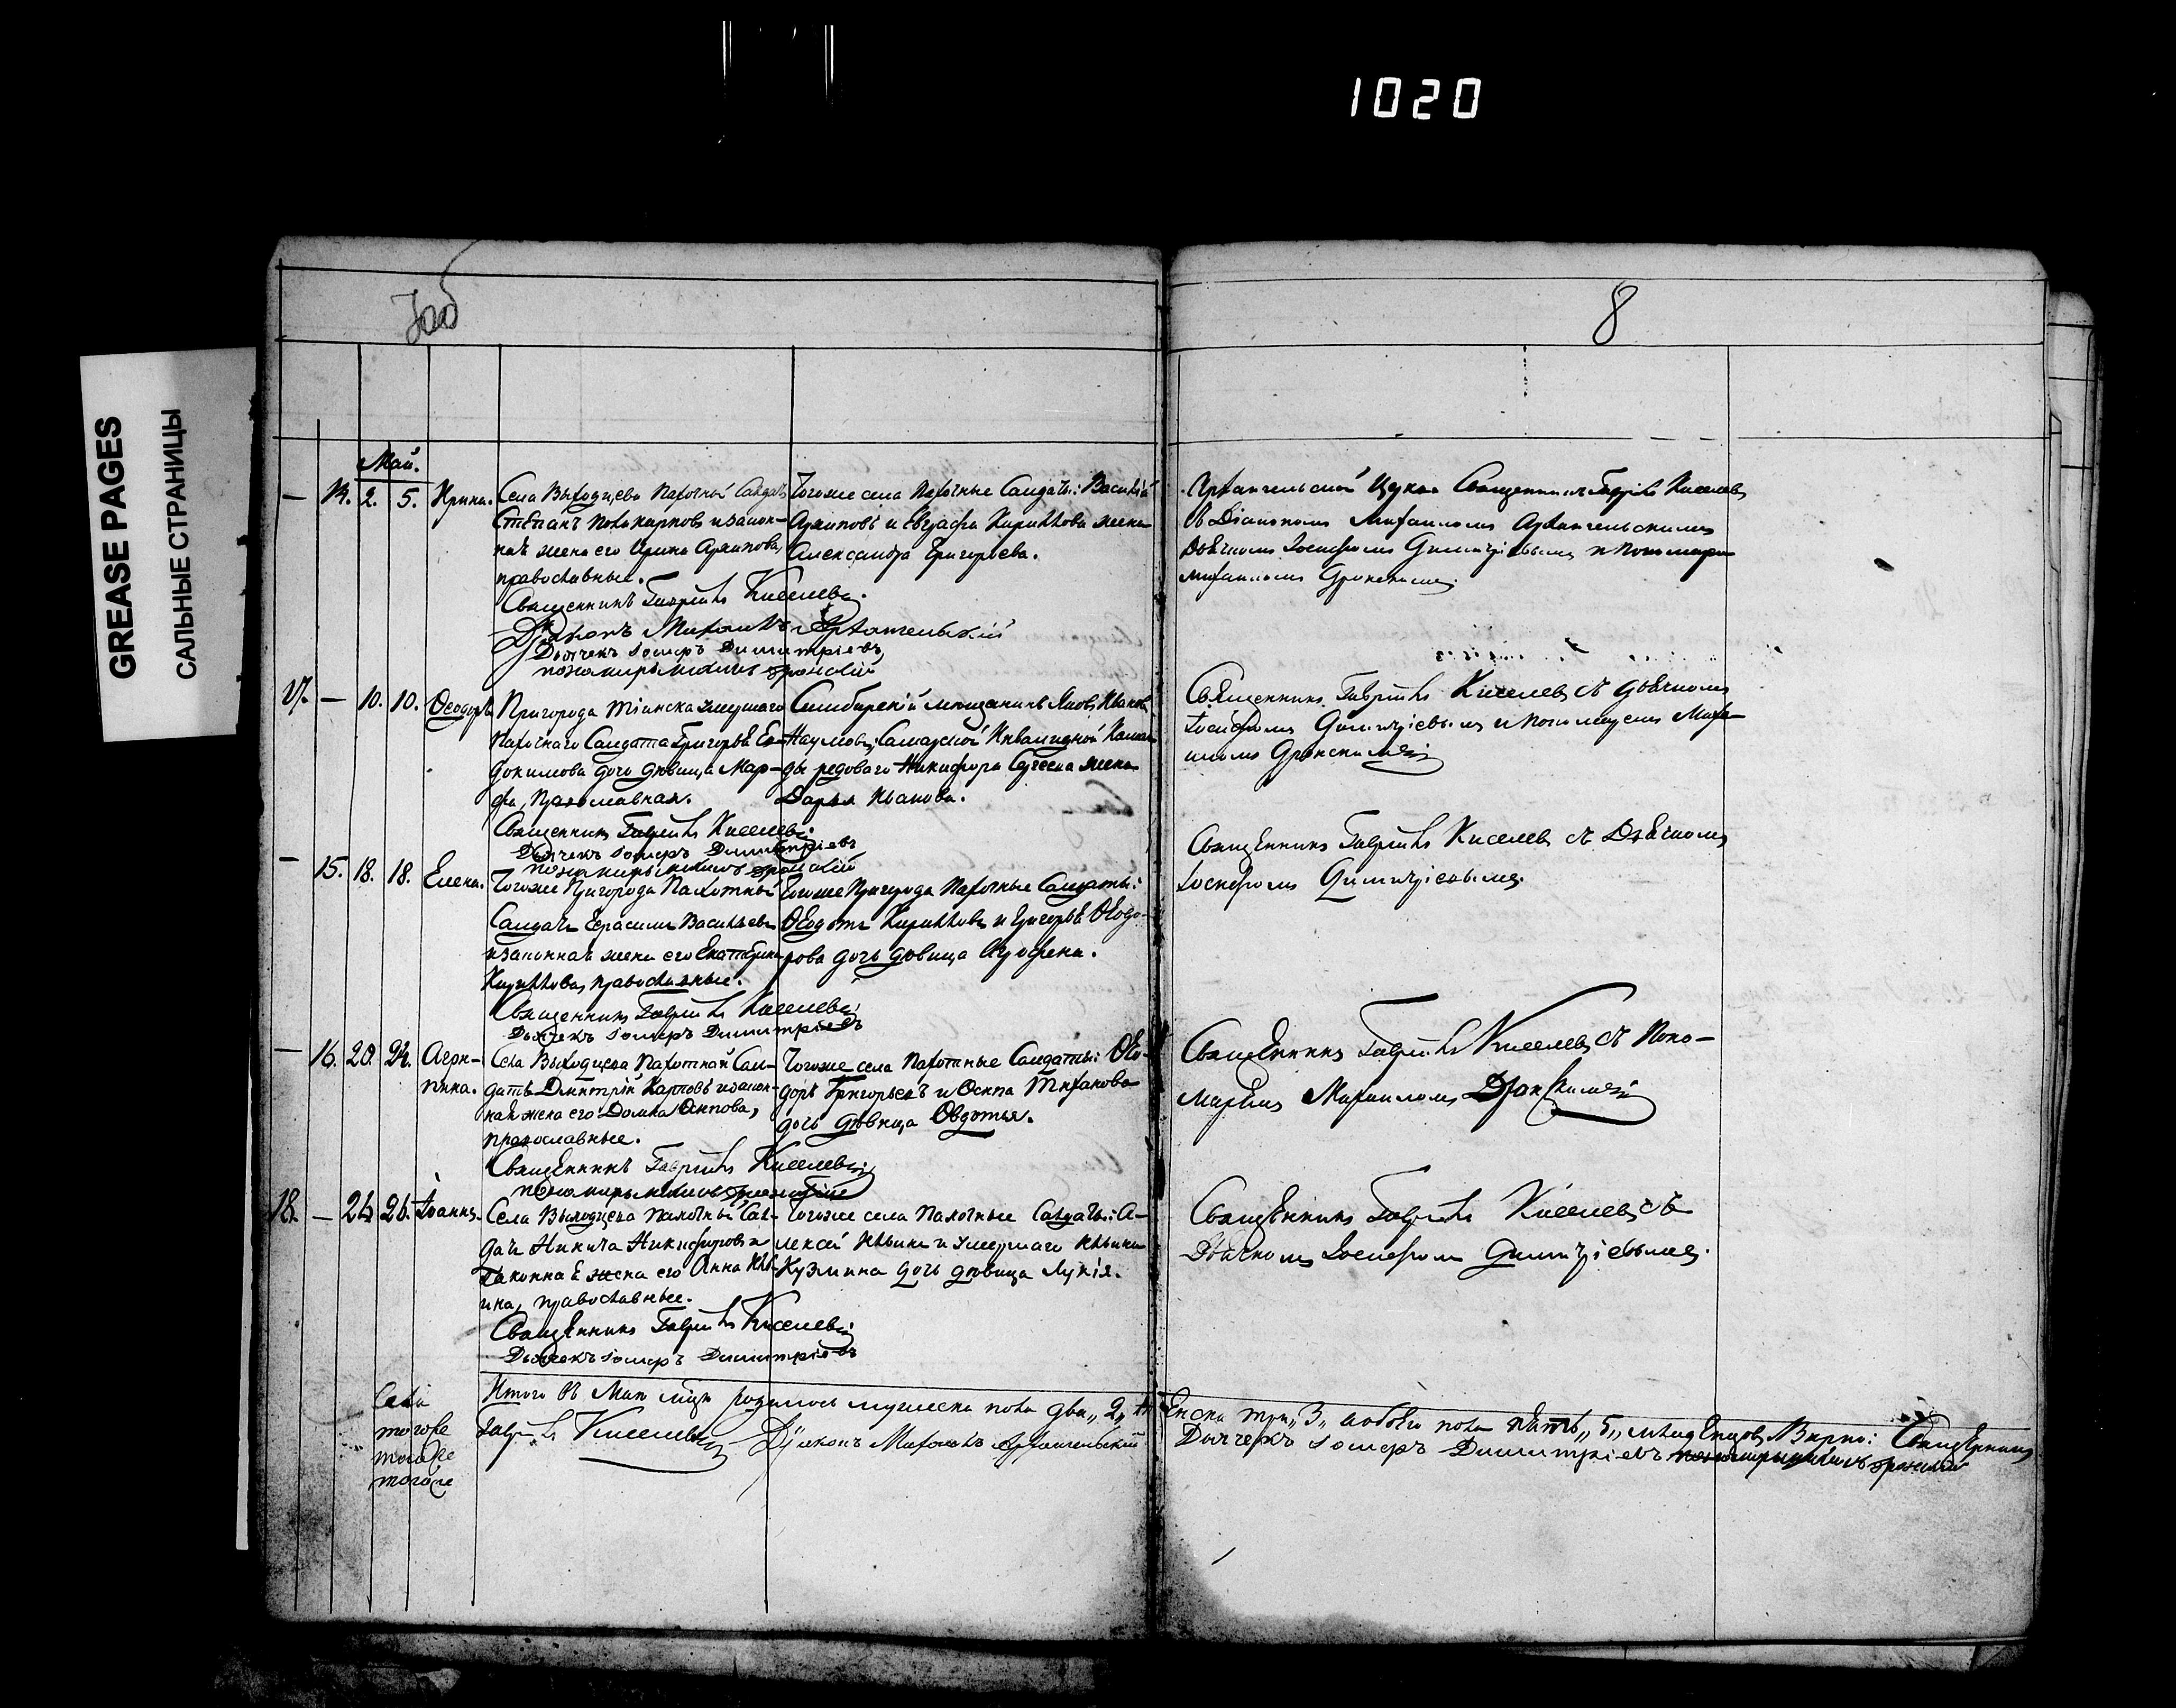 1020
GREASE PAGES
САЛЬНЫЕ СТРАНИЦЫ
7об
8
Май.
— 14. 2. 5. Ирина.
Села Выходцева Пахотный Салдатъ
Степанъ Поликарповъ и закон-
ная жена его Ирина Архипова,
православные.
Священникъ Гавриилъ Киселевъ.
Діаконъ Михаилъ Архангельскій
Дьячекъ Іосифъ Димитріевъ
Тогоже села Пахотные Салдаты: Василій
Архиповъ и Кириллова жена
Александра Григорьева.
Архангельской Церкви Священникъ Гавриилъ Киселевъ
съ Діакономъ Михаиломъ Архангельскимъ
Дьячкомъ Іосифомъ Димитріевымъ и пономаремъ
Михаиломъ
17. — 10. 10. Ѳеодоръ
Пригорода Тіинска умершаго
Пахотнаго Салдата Григорья Ев-
докимова дочь девица Мар-
фа, Православная.
Священникъ Гавриилъ Киселевъ.
Дьячекъ Іосифъ Димитріевъ
Симбирскій мещанинъ Яковъ Ивановъ
Наумовъ; Самарской Инвалидной Коман-
ды редоваго Никифора жена
Дарья Иванова.
Священникъ Гавриилъ Киселевъ съ дьячкомъ
Іосифомъ Димитріевымъ и пономаремъ Миха-
иломъ
— 15. 18. 18. Елена.
Тогоже Пригорода Пахотный
Салдатъ Герасимъ Васильевъ
и законная жена его Екатерина
Кириллова, православные.
Священникъ Гавриилъ Киселевъ
Дьячекъ Іосифъ Димитріевъ
Тогоже Пригорода Пахотные Салдаты:
Ѳедотъ Кирилловъ и Григорья Ѳедо-
рова дочь девица Агрофена.
Священникъ Гавриилъ Киселевъ съ Дьячкомъ
Іосифомъ Димитріевымъ.
— 16. 20. 24. Агри-
пина.
Села Выходцева Пахотный Сал-
датъ Дмитрій Карповъ и закон-
ная жена его Домна Осипова,
православные.
Священникъ Гавриилъ Киселевъ
Тогоже села Пахотные Салдаты: Ѳео-
доръ Григорьевъ и Осипа Тихонова
дочь девица Овдотья.
Священникъ Гавриилъ Киселевъ съ Поно-
маремъ Михаиломъ
18. — 24. 26. Іоаннъ.
Села Выходцева Пахотный Сал-
датъ Никита Никифоровъ и
законная жена его Анна Иль-
ина, православные.
Священникъ Гавриилъ Киселевъ
Дьячекъ Іосифъ Димитріевъ
Тогоже села Пахотные Салдаты: А-
лексей Ильинъ и умершаго Ильи
Кузмина дочь девица Лукія.
Священникъ Гавриилъ Киселевъ съ
Дьячкомъ Іосифомъ Димитріевымъ.
Села
тогоже
тогоже
тогоже
Итого въ Мае м҃це родилось мужеска пола два „2„ женска три „3„ обоего пола пять „5„ младенцовъ. Верно: Священникъ
Гавриилъ Киселевъ Діаконъ Михаилъ Архангельскій Дьячекъ Іосифъ Димитріевъ